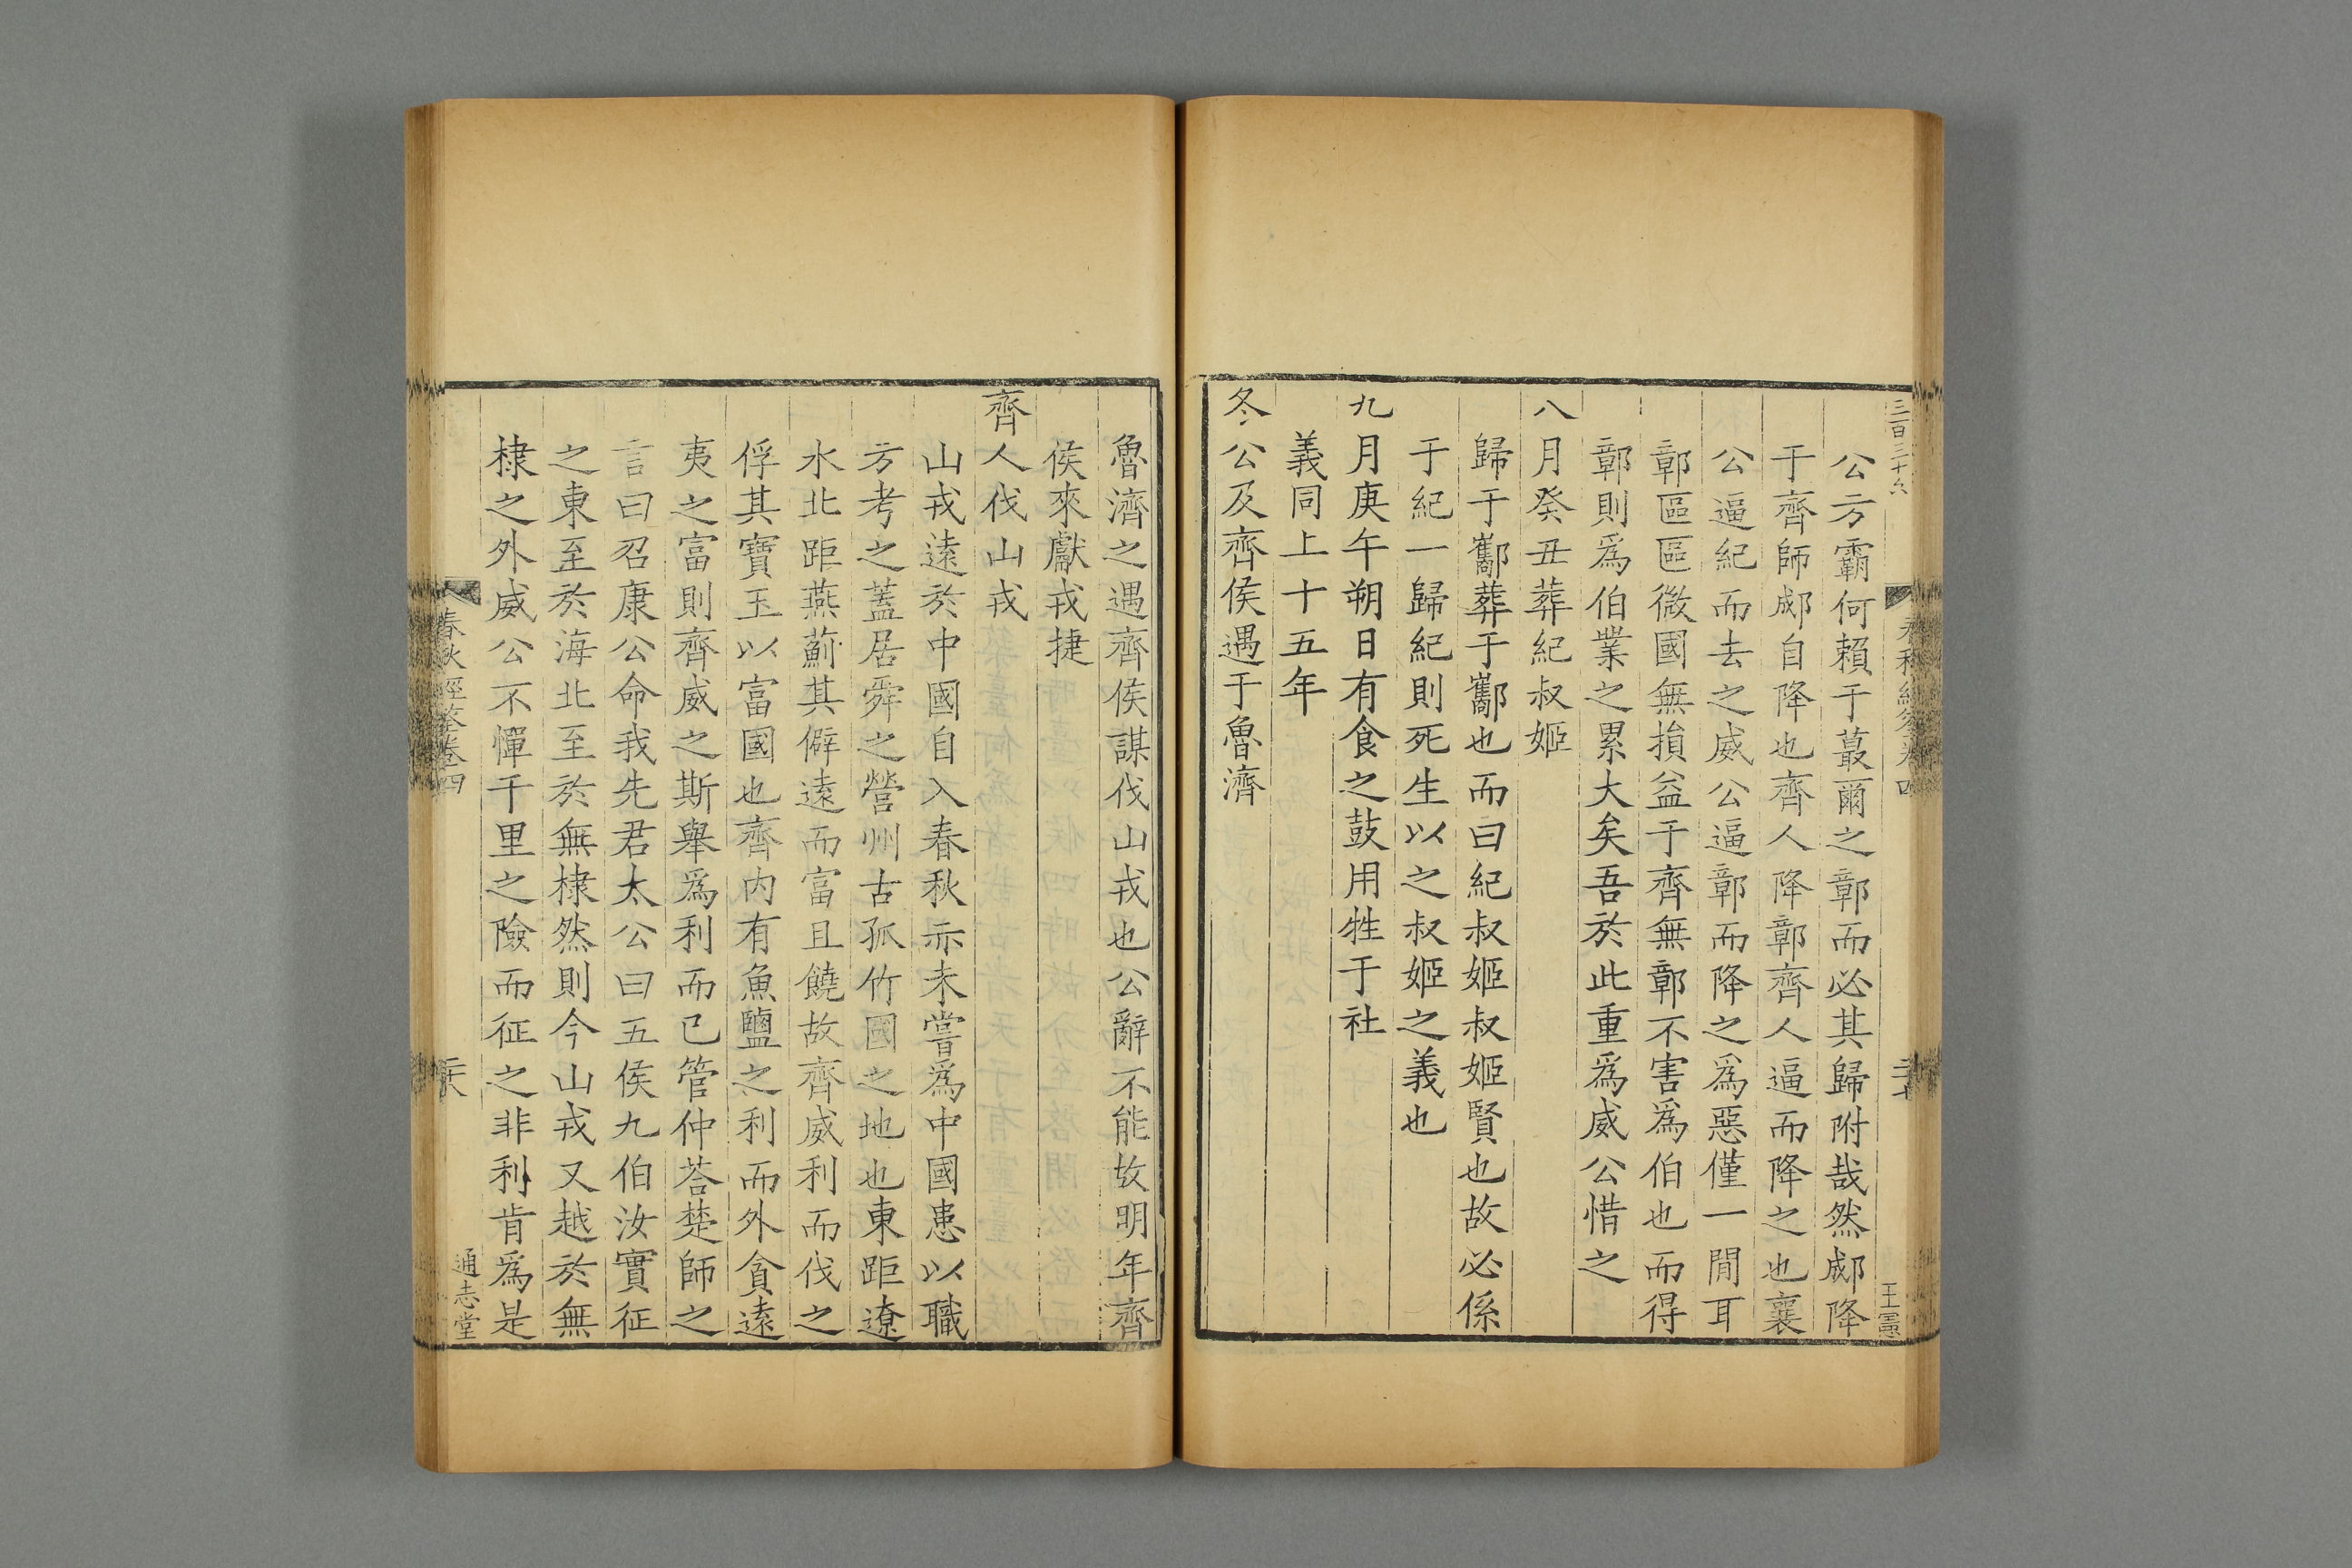 三百三十六
王憲
公方霸何賴于蕞爾之鄣而必其歸附哉然郕降
于齊師郕自降也齊人降鄣齊人逼而降之也襄
公逼紀而去之威公逼鄣而降之爲惡僅一閒耳
鄣區區微國無損益于齊無鄣不害爲伯也而得
鄣則爲伯業之累大矣吾於此重爲威公惜之
八月癸丑葬紀叔姬
歸于酅葬于酅也而曰紀叔姬叔姬賢也故必係
于紀一歸紀則死生以之叔姬之義也
九月庚午朔日有食之鼓用牲于社
義同上十五年
冬公及齊侯遇于魯濟
魯濟之遇齊侯謀伐山戎也公辭不能故明年齊
侯來獻戎捷
齊人伐山戎
山戎遠於中國自入春秋亦未嘗爲中國患以職
方考之蓋居舜之營州古孤竹國之地也東距遼
水北距燕薊其僻遠而富且饒故齊威利而伐之
俘其寶玉以富國也齊內有魚鹽之利而外貪遠
夷之富則齊威之斯舉爲利而已管仲荅楚師之
言曰召康公命我先君太公曰五侯九伯汝實征
之東至於海北至於無棣然則今山戎又越於無
棣之外威公不憚千里之險而征之非利肯爲是
春秋經筌卷四
二十八
通志堂